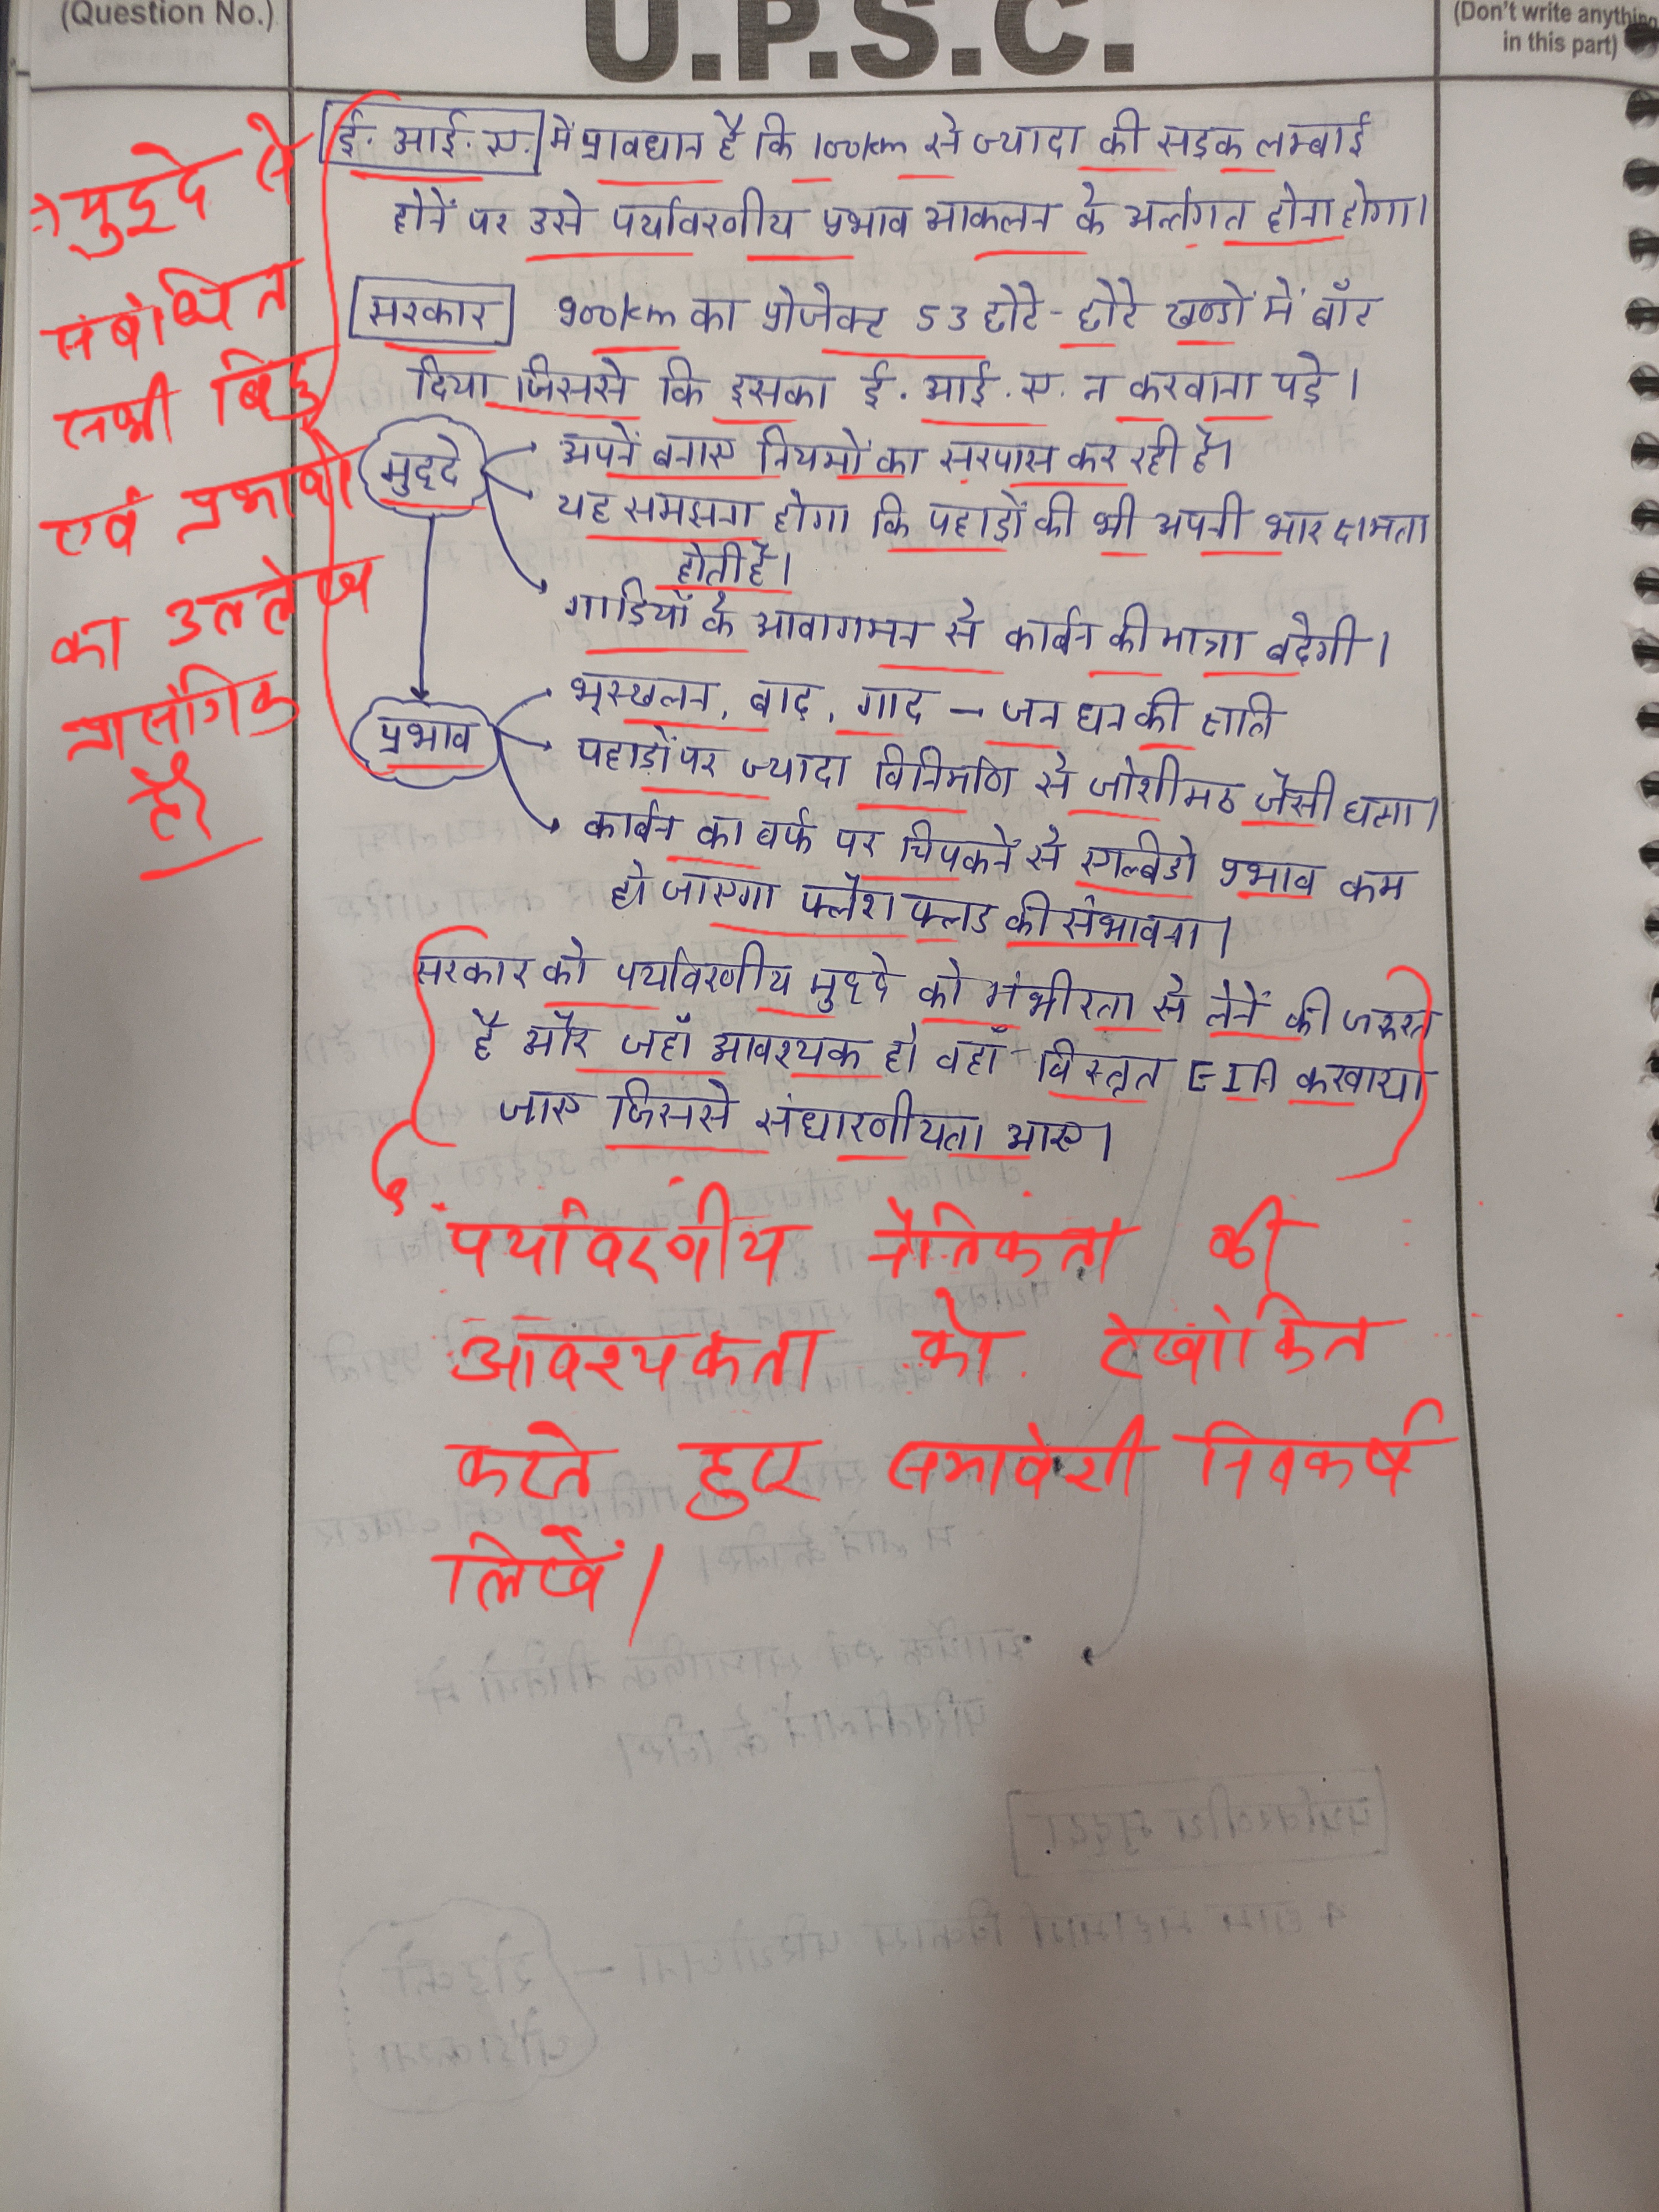 (Question No.)
U.P.S.C.
(Don't write anything
in this part)
ई. आई. ए. में प्रावधान है कि 100km से ज्यादा की सड़क लम्बाई
होनें पर उसे पर्यावरणीय प्रभाव आकलन के अर्न्तगत होना होगा।
सरकार 900km का प्रोजेक्ट 53 छोटे-छोटे खण्डों में बाँट
दिया जिससे कि इसका ई. आई. ए. न करवाना पड़े।
मुद्दे
अपनें बनाए नियमों का सरपास कर रही है।
यह समझना होगा कि पहाड़ों की भी अपनी भार क्षमता
होती है।
गाडियों के आवागमन से कार्बन की मात्रा बढेगी।
प्रभाव
भूस्खलन, बाढ़, गाद – जन धन की हानि
पहाड़ों पर ज्यादा विनिर्माण से जोशीमठ जैसी घटना।
कार्बन का बर्फ पर चिपकनें से एल्बिडो प्रभाव कम
हो जाएगा फ्लैश फ्लड की संभावना।
सरकार को पर्यावरणीय मुद्दे को गंभीरता से लेनें की जरूरत
है और जहाँ आवश्यक हो वहाँ विस्तृत EIA करवाया
जाए जिससे संधारणीयता आए।
मुद्दे से
संबंधित
सभी बिंदु
एवं प्रभावों
का उल्लेख
प्रासंगिक
है।
पर्यावरणीय नैतिकता की
आवश्यकता को रेखांकित
करते हुए समावेशी निष्कर्ष
लिखें।